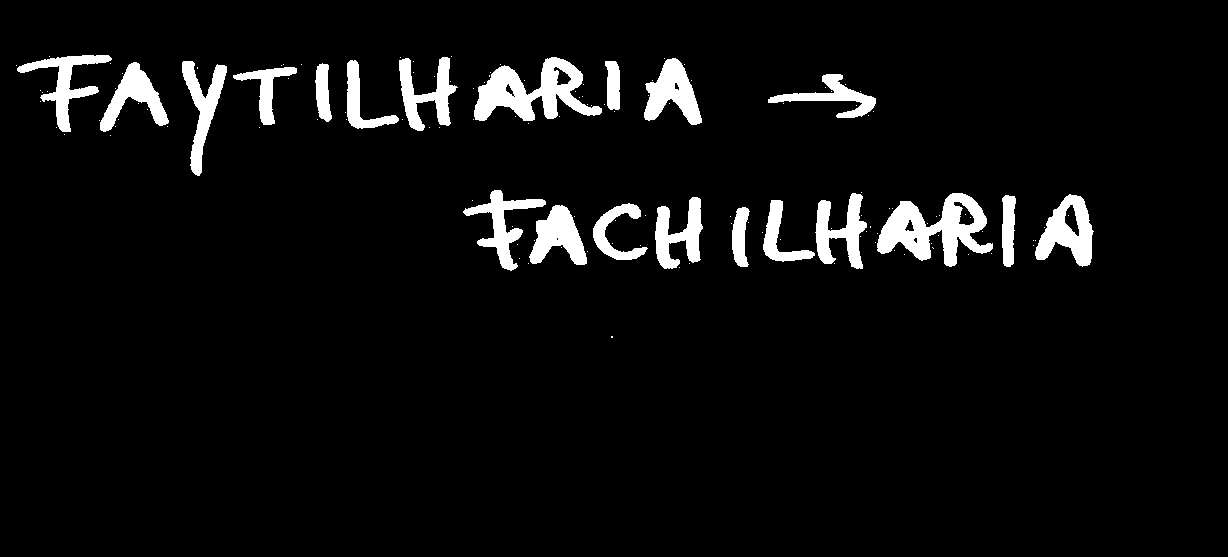 FAYTILHARIA →
FACHILHARIA